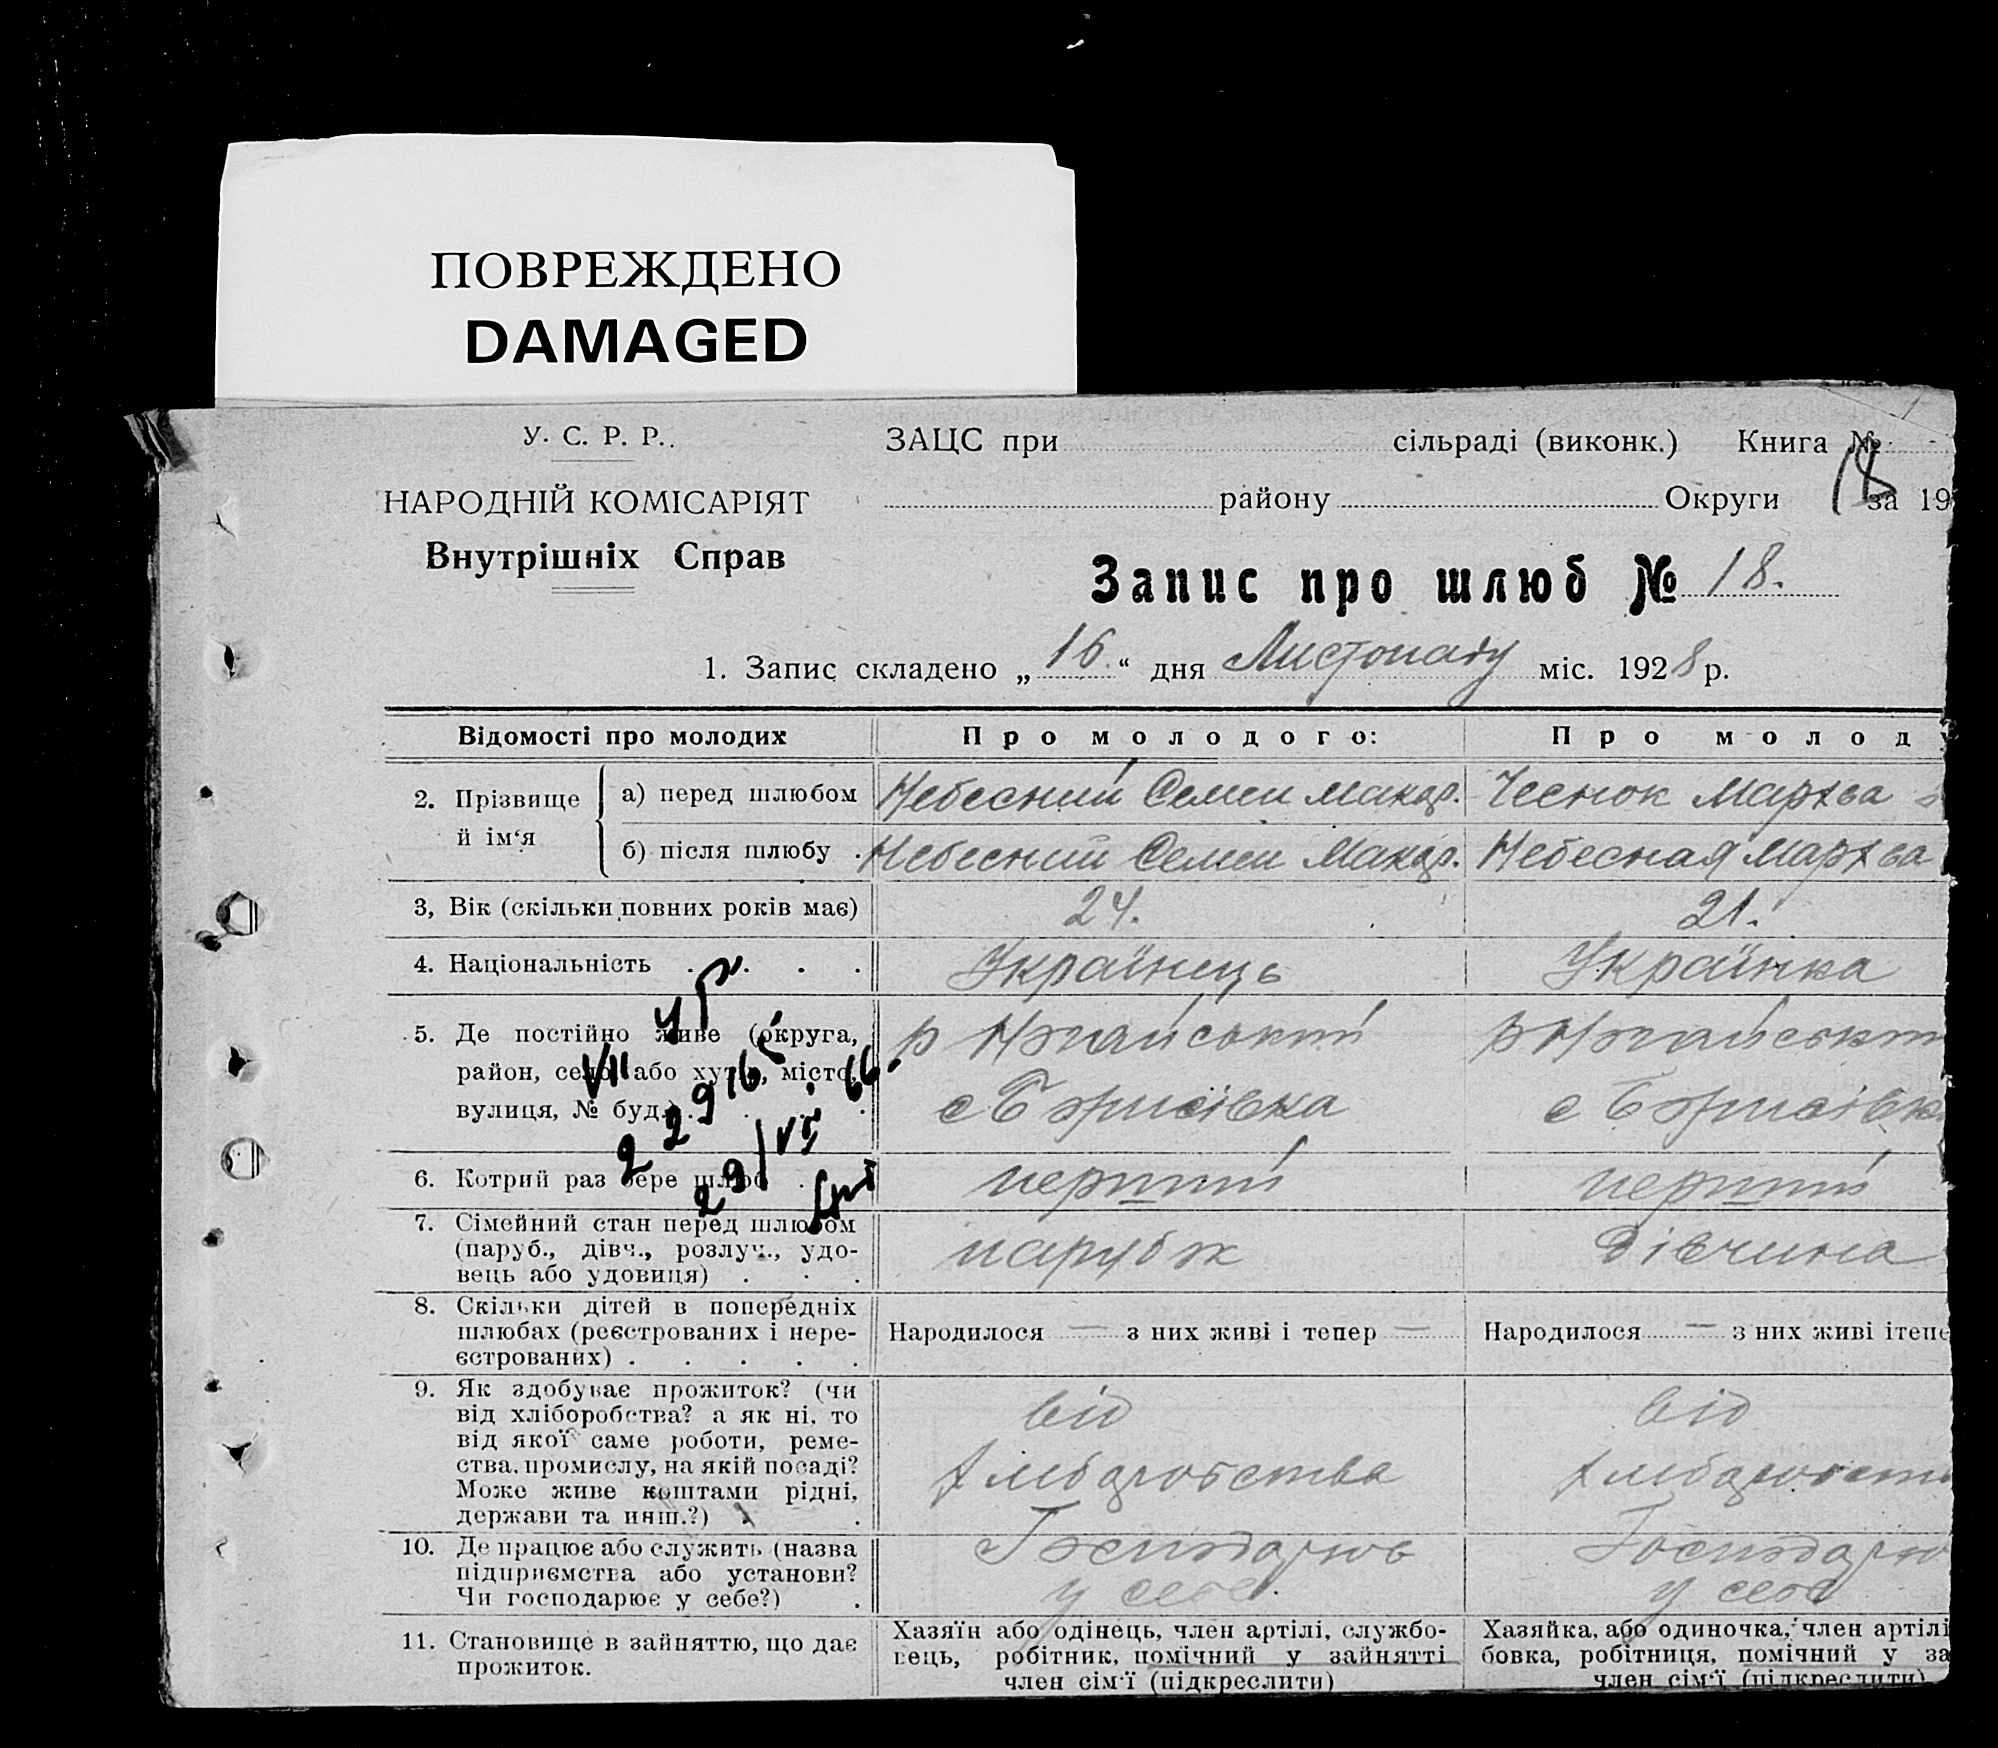 ПОВРЕЖДЕНО
DAMAGED
У. С. Р. Р.
НАРОДНІЙ КОМІСАРІЯТ
Внутрішніх Справ
ЗАЦС при сільраді (виконк.) Книга №
району Округи за 19
18
Запис про шлюб № 18.
1. Запис складено „16“ дня Листопаду міс. 1928 р.
Відомості про молодих
Про молодого:
Про молод
2. Прізвище й ім‘я
а) перед шлюбом
Небесний Семен Макар.
Чеснок Мархва
б) після шлюбу
Небесний Семен Макар.
Небесная Мархва
3, Вік (скільки повних років має)
24.
21.
4. Національність . . . .
Українець
Українка
5. Де постійно живе (округа,
район, село або хутір, місто,
вулиця, № буд.) . . . .
с Борисівка
с Борисівк
6. Котрий раз бере шлюб .
перший
перший
7. Сімейний стан перед шлюбом
(паруб., дівч., розлуч., удо-
вець або удовиця) . . .
парубок
дівчина
8. Скільки дітей в попередніх
шлюбах (реєстрованих і нере-
єстрованих) . . . . .
Народилося — з них живі і тепер —
Народилося — з них живі і тепе
9. Як здобуває прожиток? (чи
від хліборобства? а як ні, то
від якої саме роботи, реме-
ства, промислу, на якій посаді?
Може живе коштами рідні,
держави та инш.?) . .
від
хліборобства
від
10. Де працює або служить (назва
підприємства або установи?
Чи господарює у себе?) .
Господарює
у себе.
Господарю
у себе
11. Становище в зайняттю, що дає
прожиток.
Хазяїн або одінець, член артілі, службо-
вець, робітник, помічний у зайнятті
член сім‘ї (підкреслити)
Хазяйка, або одиночка, член артілі
бовка, робітниця, помічний у за
член сім‘ї (підкреслити)